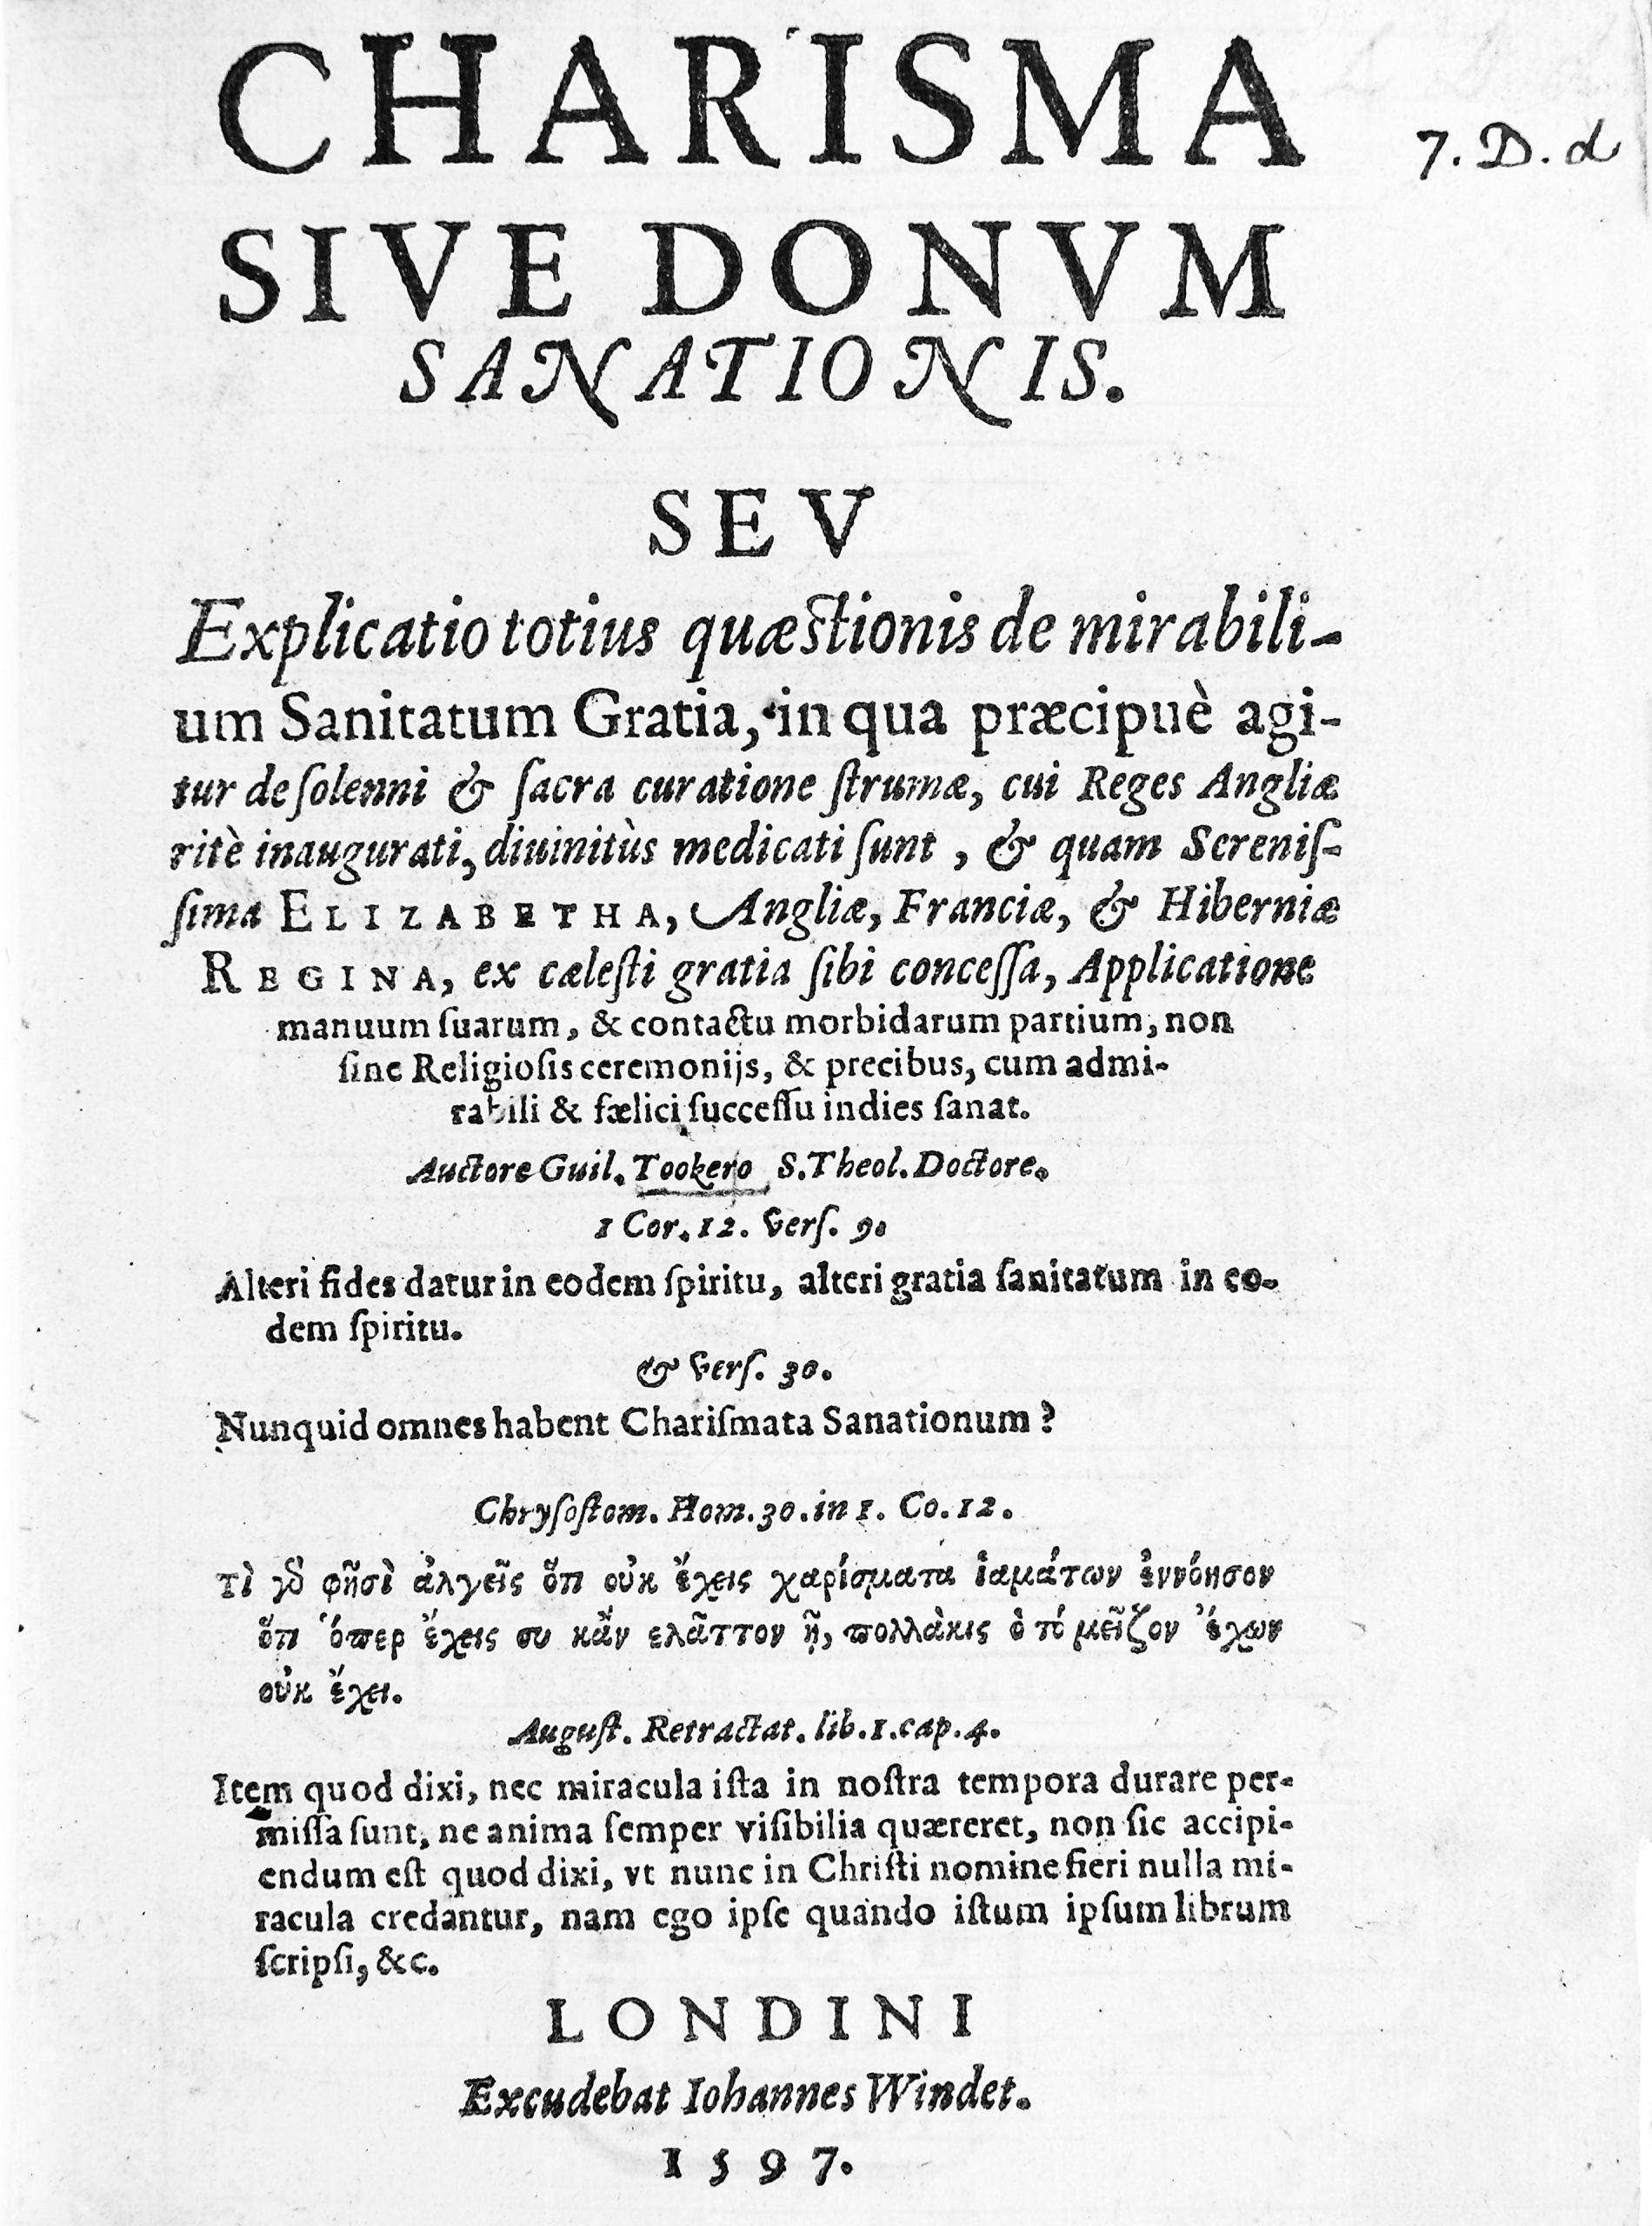 CHARISMA
7. D. d
SIVE DONVM
SANATIONIS.
SEV
Explicatio totius quæstionis de mirabili-
um Sanitatum Gratia, in qua præcipuè agi-
tur de ſolenni & ſacra curatione ſtrumæ, cui Reges Angliæ
ritè inaugurati, diuinitùs medicati ſunt, & quam Sereniſ-
ſima ELIZABETHA, Angliæ, Franciæ, & Hiberniæ
REGINA, ex cæleſti gratia ſibi conceſſa, Applicatione
manuum ſuarum, & contactu morbidarum partium, non
ſine Religioſis ceremonijs, & precibus, cum admi-
rabili & fælici ſucceſſu indies ſanat.
Auctore Guil. Tookero S. Theol. Doctore.
1 Cor. 12. verſ. 9.
Alteri fides datur in eodem ſpiritu, alteri gratia ſanitatum in eo-
dem ſpiritu.
& verſ. 30.
Nunquid omnes habent Chariſmata Sanationum?
Chryſoſtom. Hom. 30. in 1. Co. 12.
τὶ γδ φῆσὶ ἀλγεῖς ὅτι οὐκ ἔχεις χαρίσματα ἰαμάτων ἐννόησον
ὅτι ὅπερ ἔχεις συ κἂν ελᾶττον ῇ, πολλὰκις ὁ τό μεῖζον ἔχων
οὐκ ἔχει.
Auguſt. Retractat. lib. 1. cap. 4.
Item quod dixi, nec miracula iſta in noſtra tempora durare per-
miſſa ſunt, ne anima ſemper viſibilia quæreret, non ſic accipi-
endum eſt quod dixi, vt nunc in Chriſti nomine fieri nulla mi-
racula credantur, nam ego ipſe quando iſtum ipſum librum
ſcripſi, &c.
LONDINI
Excudebat Iohannes Windet.
1597.